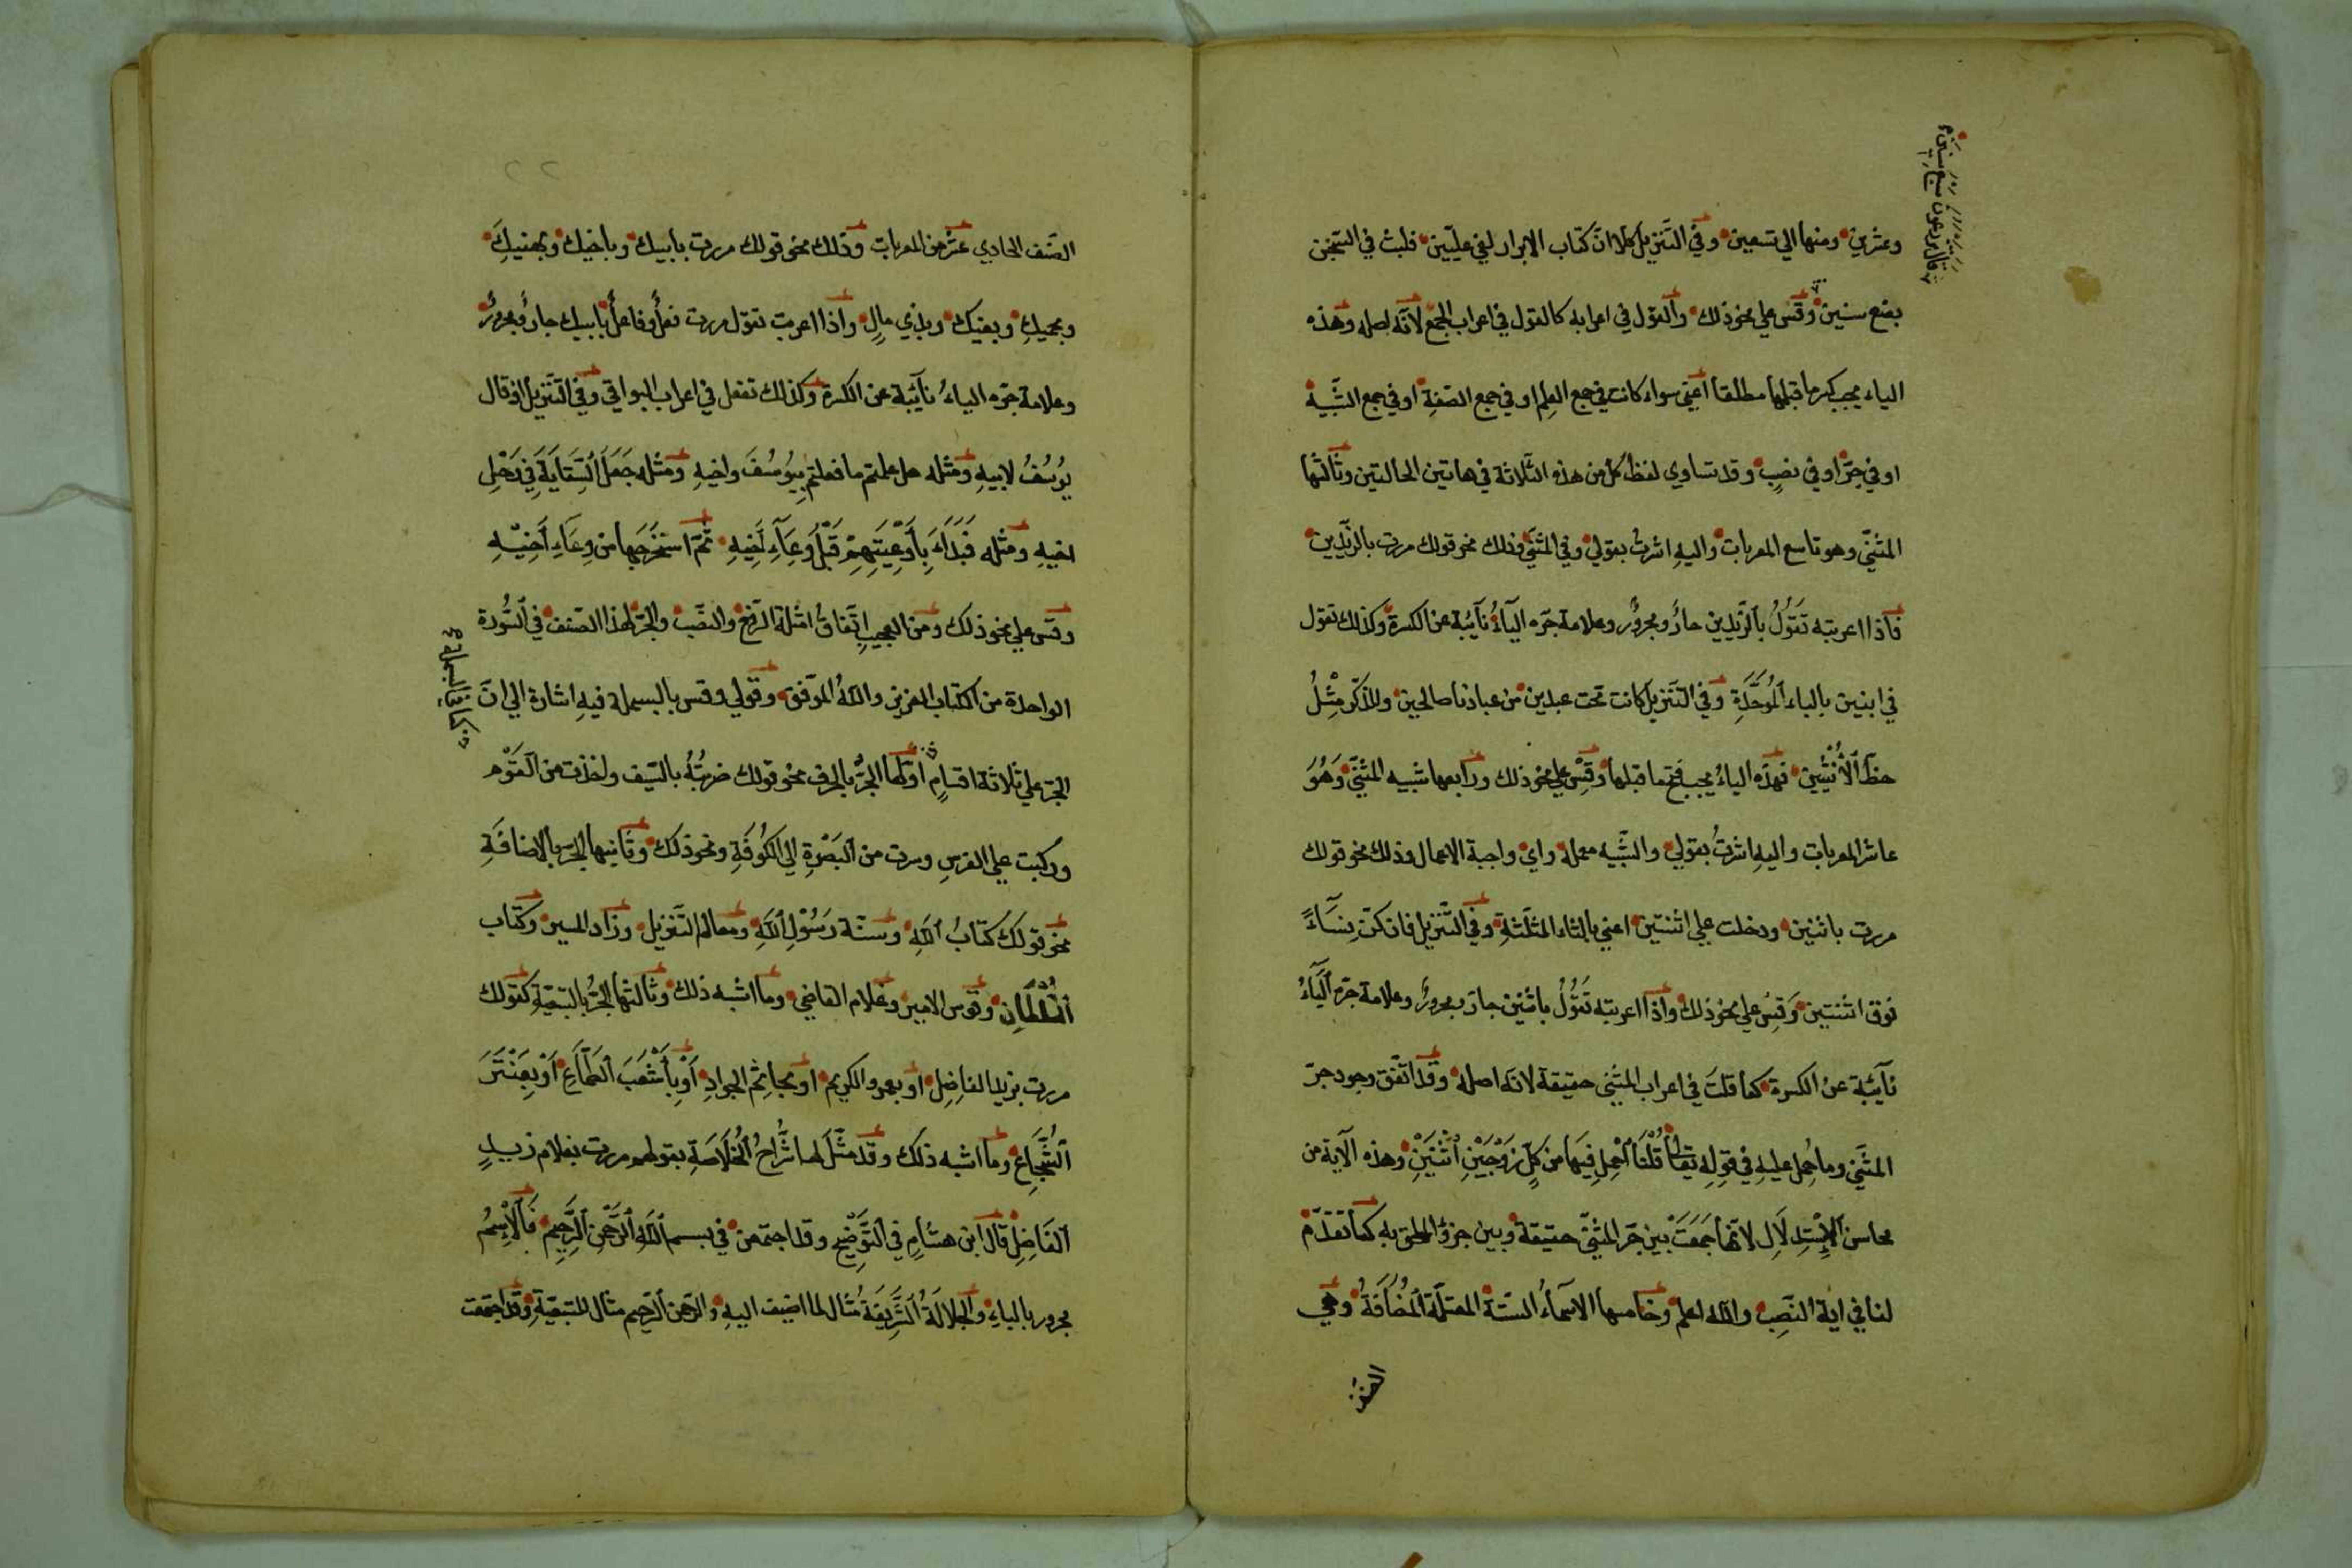 وعشرين ومنها الي تسعين وفي التنزيل كلا ان كتاب الابرار لفي عليين فلبث في السجن
قال تزرعون سبع سنين
بضع سنين وقس علي نحو ذلك والقول في اعرابه كالقول في اعراب الجمع لانه اصله وهذه
الياء يجب كسر ما قبلها مطلقا اعني سواء كانت في جمع العلم او في جمع الصفة او في جمع الشبيه
او في جرّ او في نصبٍ وقد تساوي لفظ كل من هذه الثلاثة في هاتين الحالتين وثالثها
المثنّي وهو تاسع المعربات واليه اشرت بقولي وفي المثنّي وذلك نحو قولك مررت بالزّيدين
فاذا اعربته تَقُولُ بالزّيدين جارٌّ ومجرورٌ وعلامة جرّه الياءُ نآئبة عن الكسرة وكذلك تقول
في ابنين بالياء المُوَحَّدَةِ وفي التّنزيل كانت تحت عبدين من عبادنا صالحين وللذّكر مِثْلُ
حظّ ٱلأُنْثَيين فهذه الياءُ يجب فتح ما قبلها وَقِسْ علي نحو ذلك ورابعها شبيه المثنّي وَهُوَ
عاشر المعربات واليه اشرتُ بقولي والشّبيه معمله واي واجبة الاعمال وذلك نحو قولك
مررت باثنين ودخلت علي اثنتين اعني بالثاء المثلّثةِ وفي التّنزيل فان كنّ نِسَآءً
فوق اثنتين وَقِسْ علي نحو ذلك واذا اعربته تَقُولُ باثنين جارّ ومجرورٌ وعلامة جرّه ٱليَآءُ
نآئبة عن الكسرة كما قلتَ في اعراب المثنّي حقيقة لانه اصله وقد اتّفق وجود جرّ
المثنّي وما حُمل عليه في قوله تعالي قُلْنَا ٱحْمِلْ فِيهَا من كلٍّ زَوْجَيْنِ ٱثْنَيْنِ وهذه الآية من
محاسن ٱلإسْتِدلَالِ لانّها جَمَعَتْ بين جرّ المثنّي حقيقة وبين جرّ الملحق به كما تقدّم
لنا في اية النّصب والله اعلم وخامسها الاسمآءُ السّتّة المعتلّة المُضَافَةُ وهي
الصنف
٢٢
الصّنف الحادي عشر من المعربات وذلك نحو قولك مررت بابيك وباخيك وبهنيكَ
وبحميكِ وبفيك وبذي مالٍ واذا اعربت تقول مررت فعلٌ وفاعلٌ بابيك جارٌّ ومجرورٌ
وعلامة جرّه الياءُ نآئبة عن الكسرة وكذلك تفعل في اعراب البواقي وفي التّنزيل اذ قال
يُوسُفُ لابيهِ ومثله هل علمتم ما فعلتم بِيُوسُفَ واخيهِ ومثله جَعَلَ ٱلسِّقَايَةَ فِي رَحْلِ
اخيهِ ومثله فَبَدَأَ بِأَوْعِيَتِهِمْ قَبْلَ وِعَآءِ أَخِيهِ ثُمَّ ٱستَخْرَجَها من وِعَآءِ أَخِيهِ
وقس علي نحو ذلك ومن العجيب إتّفاقُ امثلة الرّفع والنصّب والجرّ لهذا الصّنف في السُّورة
الواحدة من الكتاب العزيز والله الموّفق وقولي وقس بالبسملة فيه اشارة الي انّ
الجرّ علي ثلاثة اقسامٍ اوّلها الجرُّ بالحرف نحو قولك ضربتُهُ بالسّيف واخذت من القَوْم
وركبت علي الفرسِ وسرت من ٱلبَصْرَةِ الي الكُوفَةِ ونحو ذلك وثانيها الجرُّ بالاضافَةِ
نحو قولك كتابُ ٱللهِ وسنّة رَسُوْلِ اللهِ ومعالم التّنزيل وزاد المسير وكتاب
وقوس الامير وغلام القاضي وما اشبه ذلك وثالثها الجرُّ بالتّبعيّةِ كقولك
مررت بزيد الفاضِلِ او بعمرو الكريم او بحاتِمٍ الجوادِ أَوْ بِأَشْعَبَ ٱلطَّمَّاعِ أوْ بِعَنْتَرَ
ٱلشُّجَاعِ وما اشبه ذلك وقد مثّلَ لها شُرَّاحُ ٱلخُلَاصَةِ بقولهم مررت بغلام زيدٍ
ٱلفَاضِلِ قال ابن هشامٍ في ٱلتَّوضِيْحِ وقد اجتمعن في بسم ٱللهِ ٱلرَّحْمٰنِ ٱلرَّحِيْمِ فٱلإِسْمُ
مجرور بالباءِ والجلالَةُ ٱلشَّرِيْفَةُ مثال لما اضيف اليهِ والرّحمن ٱلرّحيم مثال للتبعيّةِ وقد اجتمعت